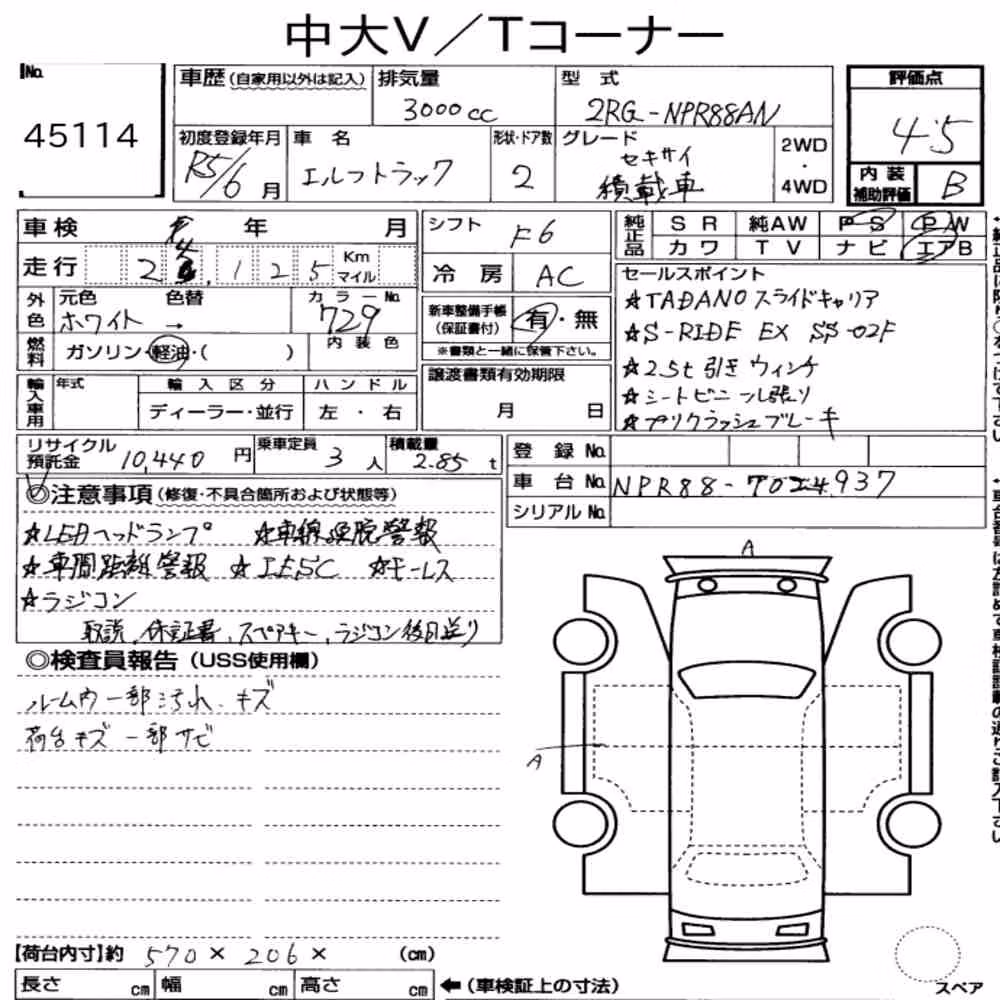 中大V／Tコーナー
No.
45114
車歴(自家用以外は記入)
排気量
3000cc
型 式
2RG-NPR88AN
評価点
4.5
初度登録年月
R5/6月
車 名
エルフトラック
形状・ドア数
2
グレード
セキサイ
積載車
2WD
・
4WD
内 装
補助評価
B
車検 年 月
走行 2 .125 Km マイル
シフト F6
冷 房 AC
純正品
SR 純AW PS PW
カワ TV ナビ エアB
外色
元色 色替
ホワイト →
カラーNo.
729
燃料
ガソリン・軽油・( )
内装色
新車整備手帳
(保証書付)
有・無
※書類と一緒に保管下さい。
セールスポイント
☆TADANOスライドキャリア
☆S-RIDE EX SS-02F
☆2.5t引きウィンチ
☆シートビニール張り
☆プリクラッシュブレーキ
輸入車用
年式
輸入区分
ディーラー・並行
ハンドル
左・右
譲渡書類有効期限
月 日
リサイクル
預託金 10,440円
乗車定員 3人
積載量
2.85t
登 録 No.
車 台 No. NPR88-7024937
シリアル No.
◎注意事項(修復・不具合箇所および状態等)
☆LEDヘッドランプ ☆車線逸脱警報
☆車間距離警報 ☆IESC ☆モーレス
☆ラジコン
取説、保証書、スペアキー、ラジコン後日送り
◎検査員報告(USS使用欄)
ルーム内一部汚れ、キズ
荷台キズ 一部サビ
A
A
【荷台内寸】約 570 × 206 × (cm)
長さ cm 幅 cm 高さ cm
←(車検証上の寸法)
スペア